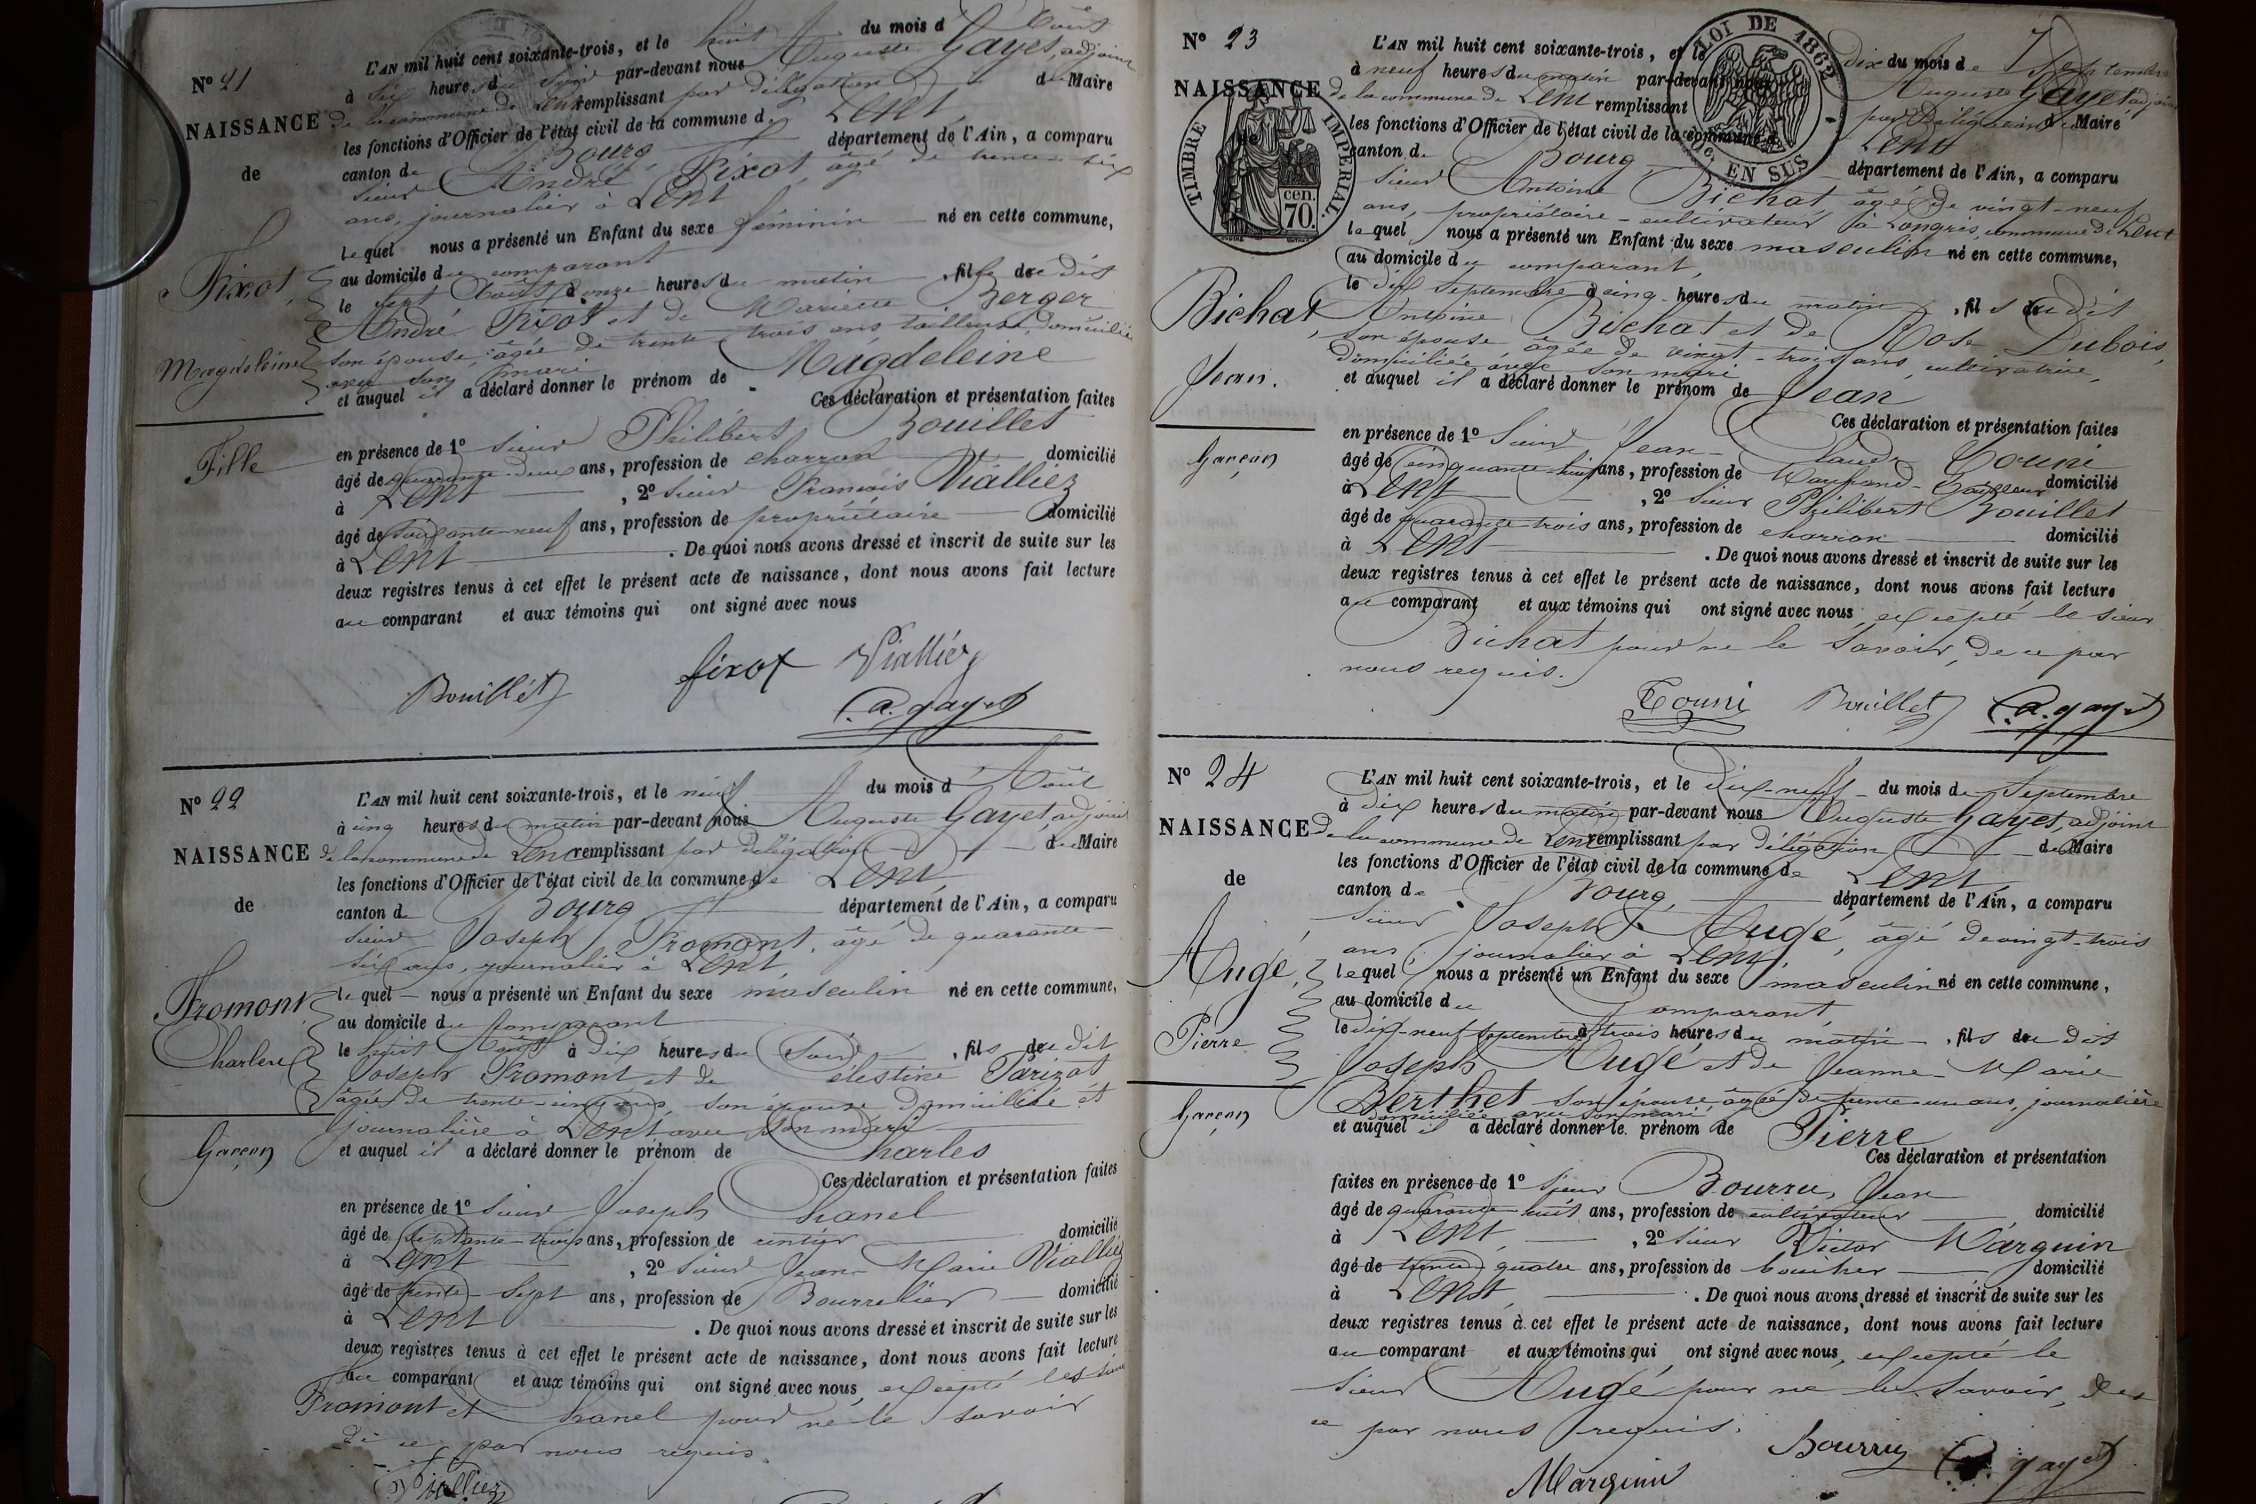 N° 21
NAISSANCE
de
Fixot,
Magdeleine
Fille
L'AN mil huit cent soixante-trois, et le huit du mois d'Août
à six heures du soir par-devant nous Auguste Gayet, adjoint
de la commune de Lent remplissant par délégation de Maire
les fonctions d'Officier de l'état civil de la commune de Lent,
canton de Bourg, département de l'Ain, a comparu
sieur André Fixot, âgé de trente-six
ans, journalier à Lent
lequel nous a présenté un Enfant du sexe féminin né en cette commune,
au domicile du comparant
le sept Août à onze heures du matin, fille du dit
André Fixot et de Mariette Berger
son épouse, âgée de trente-trois ans tailleuse, domiciliée
avec son mari
et auquel il a déclaré donner le prénom de Magdeleine
Ces déclaration et présentation faites
en présence de 1° sieur Philibert Bouillet
âgé de quarante-deux ans, profession de charron domicilié
à Lent, 2° sieur François Vialliez
âgé de soixante-neuf ans, profession de propriétaire domicilié
à Lent. De quoi nous avons dressé et inscrit de suite sur les
deux registres tenus à cet effet le présent acte de naissance, dont nous avons fait lecture
au comparant et aux témoins qui ont signé avec nous
Bouillet fixot Viallier
C. a. gayet
N° 22
NAISSANCE
de
Fromont
Charles
Garçon
L'AN mil huit cent soixante-trois, et le neuf du mois d'Août
à cinq heures du matin par-devant nous Auguste Gayet, adjoint
de la commune de Lent remplissant par délégation de Maire
les fonctions d'Officier de l'état civil de la commune de Lent,
canton de Bourg département de l'Ain, a comparu
sieur Joseph Fromont, âgé de quarante-
six ans, journalier à Lent,
lequel nous a présenté un Enfant du sexe masculin né en cette commune,
au domicile du comparant
le huit Août à dix heures du soir, fils du dit
Joseph Fromont et de Célestine Parizot
âgée de trente-cinq ans, son épouse domiciliée et
journalière à Lent avec son mari
et auquel il a déclaré donner le prénom de Charles
Ces déclaration et présentation faites
en présence de 1° sieur Joseph Chanel
âgé de septante-trois ans, profession de rentier domicilié
à Lent, 2° sieur Jean-Marie Viallier
âgé de trente-sept ans, profession de Bourrelier domicilié
à Lent. De quoi nous avons dressé et inscrit de suite sur les
deux registres tenus à cet effet le présent acte de naissance, dont nous avons fait lecture
au comparant et aux témoins qui ont signé avec nous, excepté les sieurs
Fromont et Chanel pour ne le savoir
de ce par nous requis.
Viallier
N° 23
NAISSANCE
de
TIMBRE IMPERIAL.
70 cen.
LOI DE 1862
EN SUS
Bichat,
Jean.
Garçon
L'AN mil huit cent soixante-trois, et le dix du mois de Septembre
à neuf heures du matin par-devant nous Auguste Gayet adjoint
de la commune de Lent remplissant par délégation de Maire
les fonctions d'Officier de l'état civil de la commune de Lent
canton de Bourg, département de l'Ain, a comparu
sieur Antoine Bichat âgé de vingt-neuf
ans, propriétaire-cultivateur à Longris, commune de Lent
lequel nous a présenté un Enfant du sexe masculin né en cette commune,
au domicile du comparant,
le dix Septembre à cinq heures du matin, fils du dit
Antoine Bichat et de Rose Dubois,
son épouse âgée de vingt-trois ans, cultivatrice,
domiciliée avec son mari
et auquel il a déclaré donner le prénom de Jean
Ces déclaration et présentation faites
en présence de 1° sieur Jean-Claude Touni
âgé de cinquante-huit ans, profession de Marchand-Tailleur domicilié
à Lent, 2° sieur Philibert Bouillet
âgé de quarante-trois ans, profession de charron domicilié
à Lent. De quoi nous avons dressé et inscrit de suite sur les
deux registres tenus à cet effet le présent acte de naissance, dont nous avons fait lecture
au comparant et aux témoins qui ont signé avec nous excepté le sieur
Bichat pour ne le savoir, de ce par
nous requis.
Touni Bouillet C. a. gayet
N° 24
NAISSANCE
de
Augé,
Pierre
Garçon
L'AN mil huit cent soixante-trois, et le dix-neuf du mois de Septembre
à dix heures du matin par-devant nous Auguste Gayet, adjoint
de la commune de Lent remplissant par délégation de Maire
les fonctions d'Officier de l'état civil de la commune de Lent,
canton de Bourg, département de l'Ain, a comparu
sieur Joseph Augé, âgé de vingt-trois
ans, journalier à Lent,
lequel nous a présenté un Enfant du sexe masculin né en cette commune,
au domicile du comparant,
le dix-neuf Septembre à trois heures du matin, fils du dit
Joseph Augé et de Jeanne-Marie
Berthet son épouse âgée de trente-un ans, journalière
domiciliée avec son mari
et auquel il a déclaré donner le prénom de Pierre
Ces déclaration et présentation
faites en présence de 1° sieur Bourru, Jean
âgé de quarante-huit ans, profession de cultivateur domicilié
à Lent, 2° sieur Victor Marguin
âgé de trente-quatre ans, profession de boucher domicilié
à Lent. De quoi nous avons dressé et inscrit de suite sur les
deux registres tenus à cet effet le présent acte de naissance, dont nous avons fait lecture
au comparant et aux témoins qui ont signé avec nous, excepté le
sieur Augé pour ne le savoir, de
ce par nous requis.
Marguin Bourru C. a. gayet